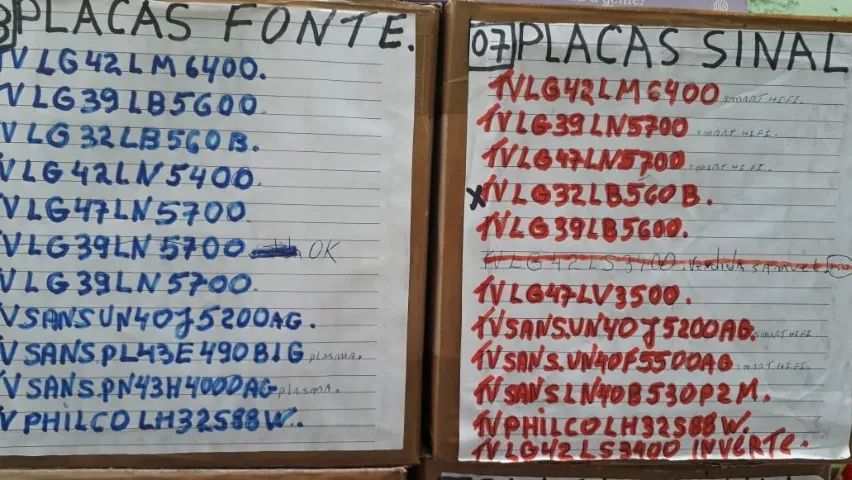 a gente!
PLACAS FONTE.
TV LG42LM6400.
TV LG39LB5600.
TV LG 32LB560B.
TV LG42LN5400.
TV LG47LN5700.
TV LG39LN5700 OK
TV LG39LN5700.
TV SANSUN40J5200AG.
TV SANSPL43E490B1G plasma.
TV SANS.PN43H4000AG plasma.
TV PHILCO LH32588W.
07 PLACAS SINAL
TV LG42LM6400 SMART HI FI.
TV LG39LN5700 SMART HI FI.
TV LG47LN5700 SMART HI FI.
X TV LG32LB560B.
TV LG39LB5600.
TV LG42LS3400. Vendida SAMUEL
TV LG47LV3500.
TV SANS.UN40J5200AG. SMART HI FI
TV SANS.UN40F5500AG SMART HI FI.
TV SANS LN40B530P2M.
TV PHILCO LH32588W.
TV LG42LS3400 INVERTE.